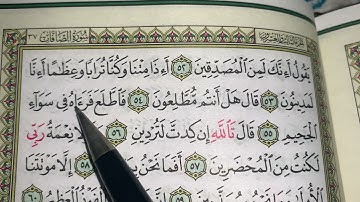 سُورَةُ الصَّافَّاتِ ٣٧
يَقُولُ أَءِنَّكَ لَمِنَ الْمُصَدِّقِينَ ٥٢ أَءِذَا مِتْنَا وَكُنَّا تُرَابًا وَعِظَٰمًا أَءِنَّا
لَمَدِينُونَ ٥٣ قَالَ هَلْ أَنتُم مُّطَّلِعُونَ ٥٤ فَاطَّلَعَ فَرَءَاهُ فِي سَوَآءِ
الْجَحِيمِ ٥٥ قَالَ تَاللَّهِ إِن كِدتَّ لَتُرْدِينِ ٥٦ نِعْمَةُ رَبِّي
لَكُنتُ مِنَ الْمُحْضَرِينَ ٥٧ أَفَمَا نَحْنُ ٥٨ إِلَّا مَوْتَتَنَا